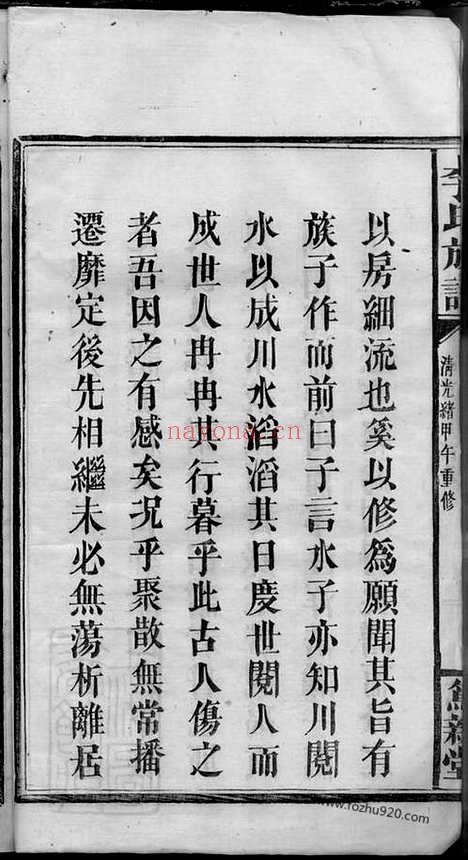 李氏族譜
清光緒甲午重修
以房細流也奚以修為願聞其旨有
族子作而前曰子言水子亦知川閱
水以成川水滔滔其日度世閱人而
成世人冉冉其行暮乎此古人傷之
者吾因之有感矣况乎聚散無常播
遷靡定後先相繼未必無蕩析離居
nayona.cn
www.fozhu920.com